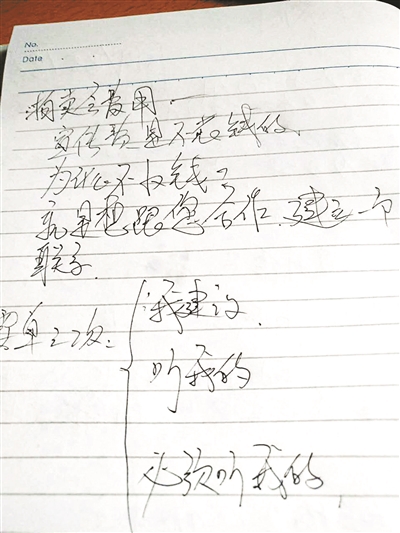 No.
Date
拍卖会费用.
宣传费是不收钱的、
为什么不收钱？
就是想跟您合作、建立一个
联系.
要单三次：
我建议、
听我的
必须听我的、